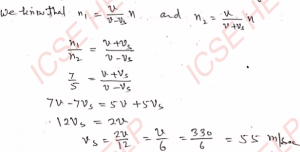 We know that n₁ = v/(v-vₛ) n and n₂ = v/(v+vₛ) n
n₁/n₂ = (v+vₛ)/(v-vₛ)
7/5 = (v+vₛ)/(v-vₛ)
7v-7vₛ = 5v+5vₛ
12vₛ = 2v
vₛ = 2v/12 = v/6 = 330/6 = 55 m/sec